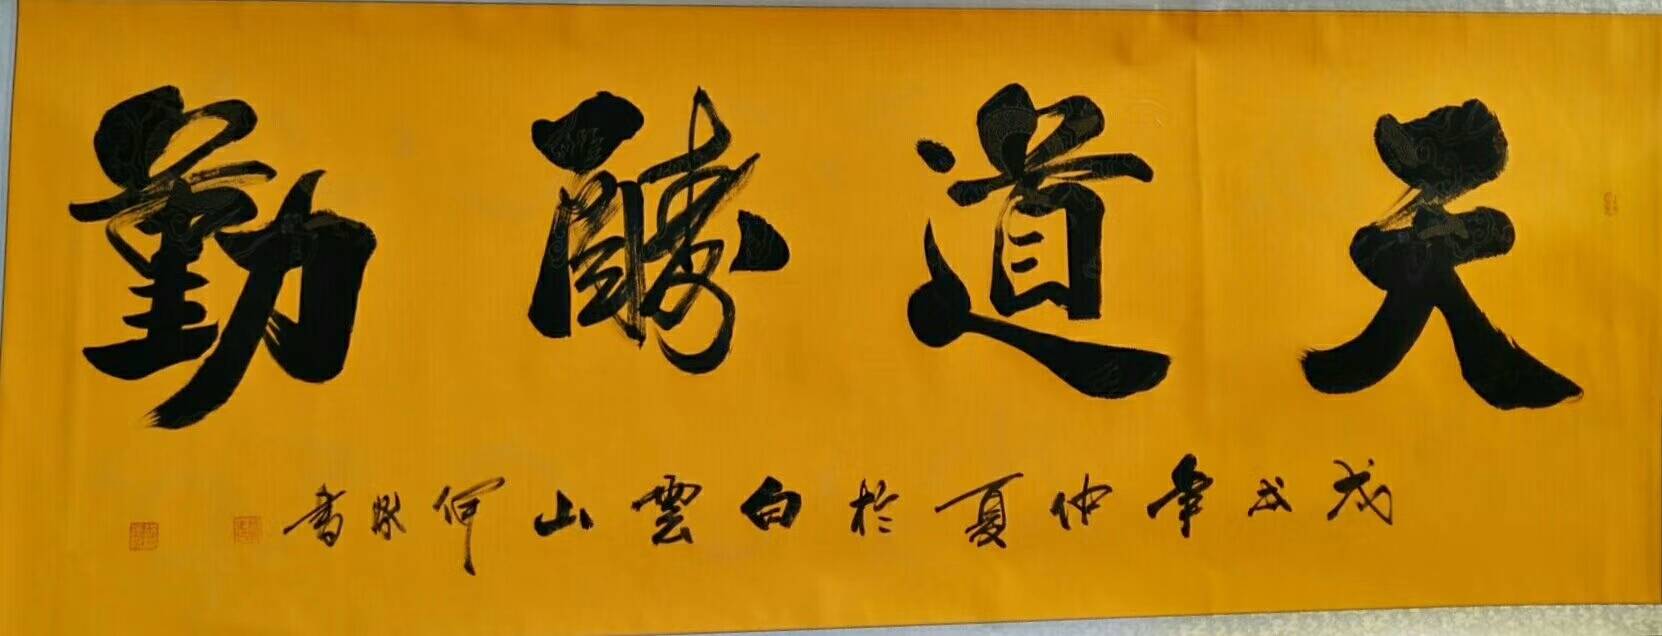 天道酬勤
戊戌年仲夏於白雲山何书